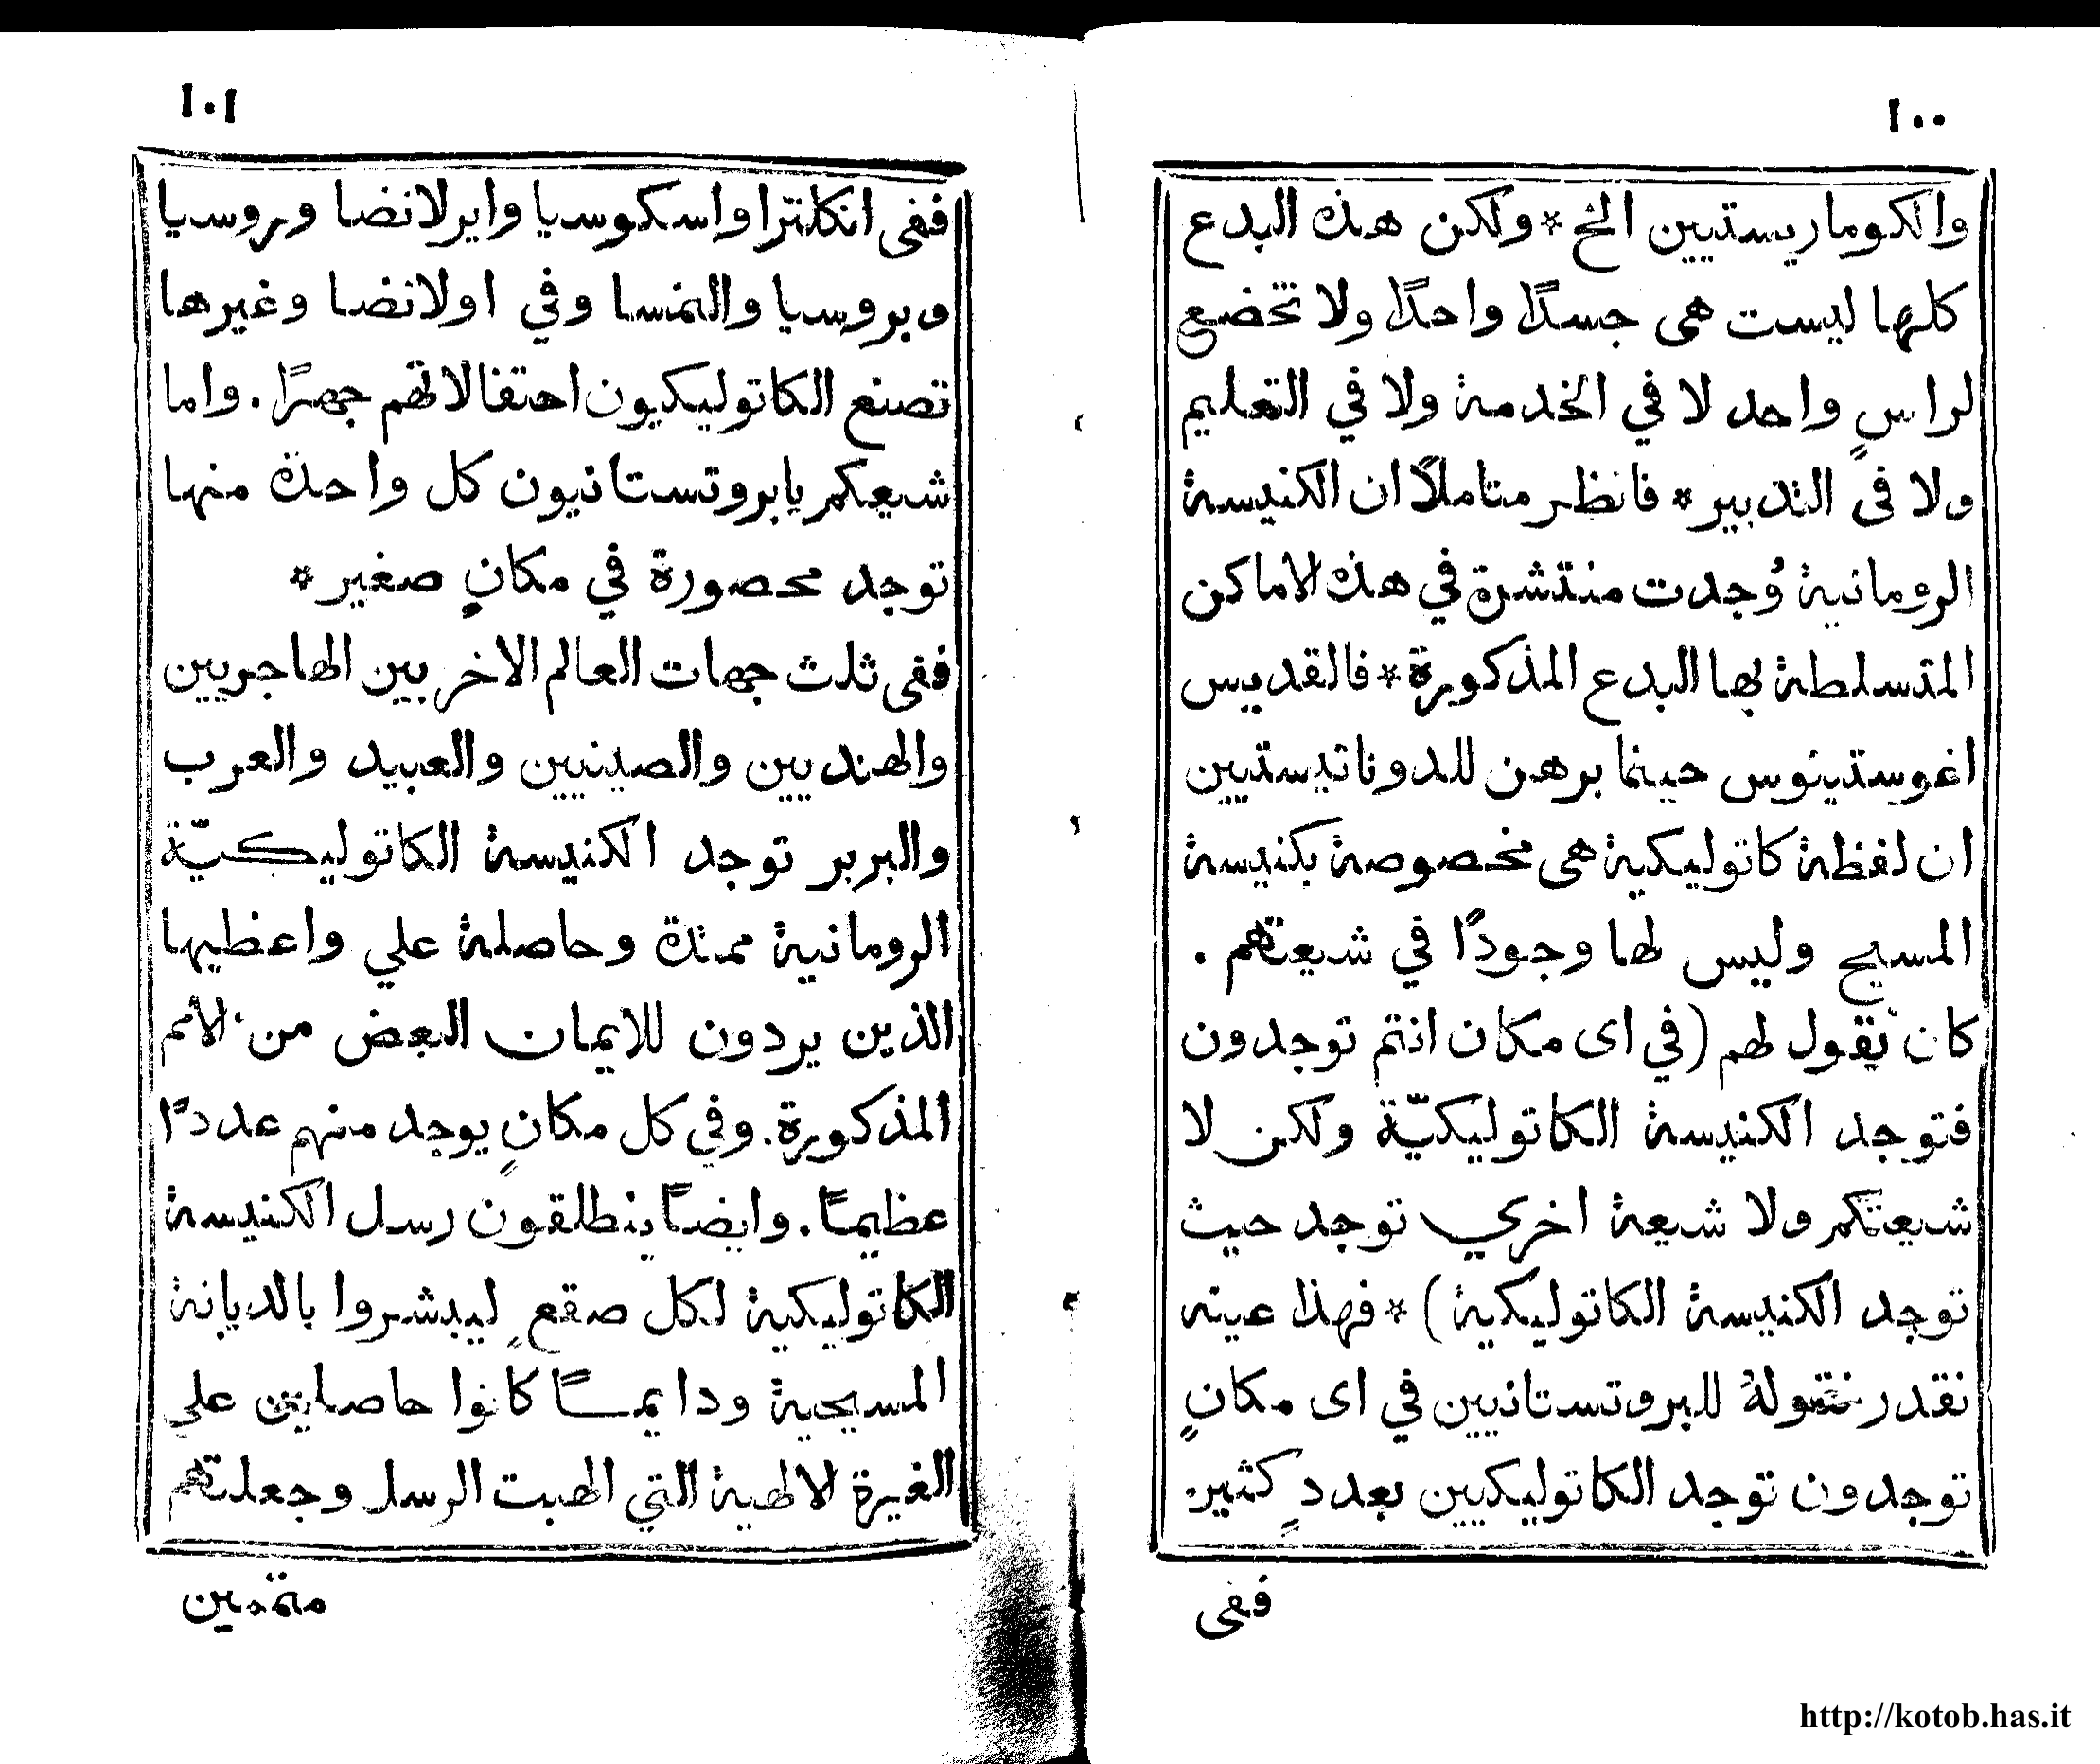 ١٠٠
والكوماريستيين الخ * ولكن هذه البدع
كلها ليست هى جسدًا واحدًا ولا تخضع
لراسٍ واحد لا في الخدمة ولا في التعليم
ولا فى التدبير * فانظر متاملاً ان الكنيسة
الرومانية وُجدت منتشرة في هذه الاماكن
المتسلطة بها البدع المذكورة * فالقديس
اغوستينوس حينما برهن للدوناتيستيين
ان لفظة كاتوليكية هى مخصوصة بكنيسة
المسيح وليس لها وجودًا في شيعتهم .
كان يقول لهم (في اى مكان انتم توجدون
فتوجد الكنيسة الكاتوليكيّة ولكن لا
شيعتكم ولا شيعة اخري توجد حيث
توجد الكنيسة الكاتوليكية) * فهذا عينه
نقدر نقوله للبروتستانيين في اى مكانٍ
توجدون توجد الكاتوليكيين بعددٍ كثير.
ففى
١٠١
ففى انكلترا واسكوسيا وايرلانضا وروسيا
وبروسيا والنمسا وفي اولانضا وغيرها
تصنع الكاتوليكيون احتفالاتهم جهرًا . واما
شيعكم يابروتستانيون كل واحدة منها
توجد محصورة في مكانٍ صغير *
ففى ثلث جهات العالم الاخر بين الهاجريين
والهنديين والصينيين والعبيد والعرب
والبربر توجد الكنيسة الكاتوليكيّة
الرومانية ممتدة وحاصلة علي واعظيها
الذين يردون للايمان البعض من الأمم
المذكورة . وفي كل مكانٍ يوجد منهم عددًا
عظيمًا . وايضًا ينطلقون رسل الكنيسة
الكاتوليكية لكل صقعٍ ليبشروا بالديانة
المسيحية ودايمًا كانوا حاصلين علي
الغيرة الالهية التي الهبت الرسل وجعلتهم
http://kotob.has.it